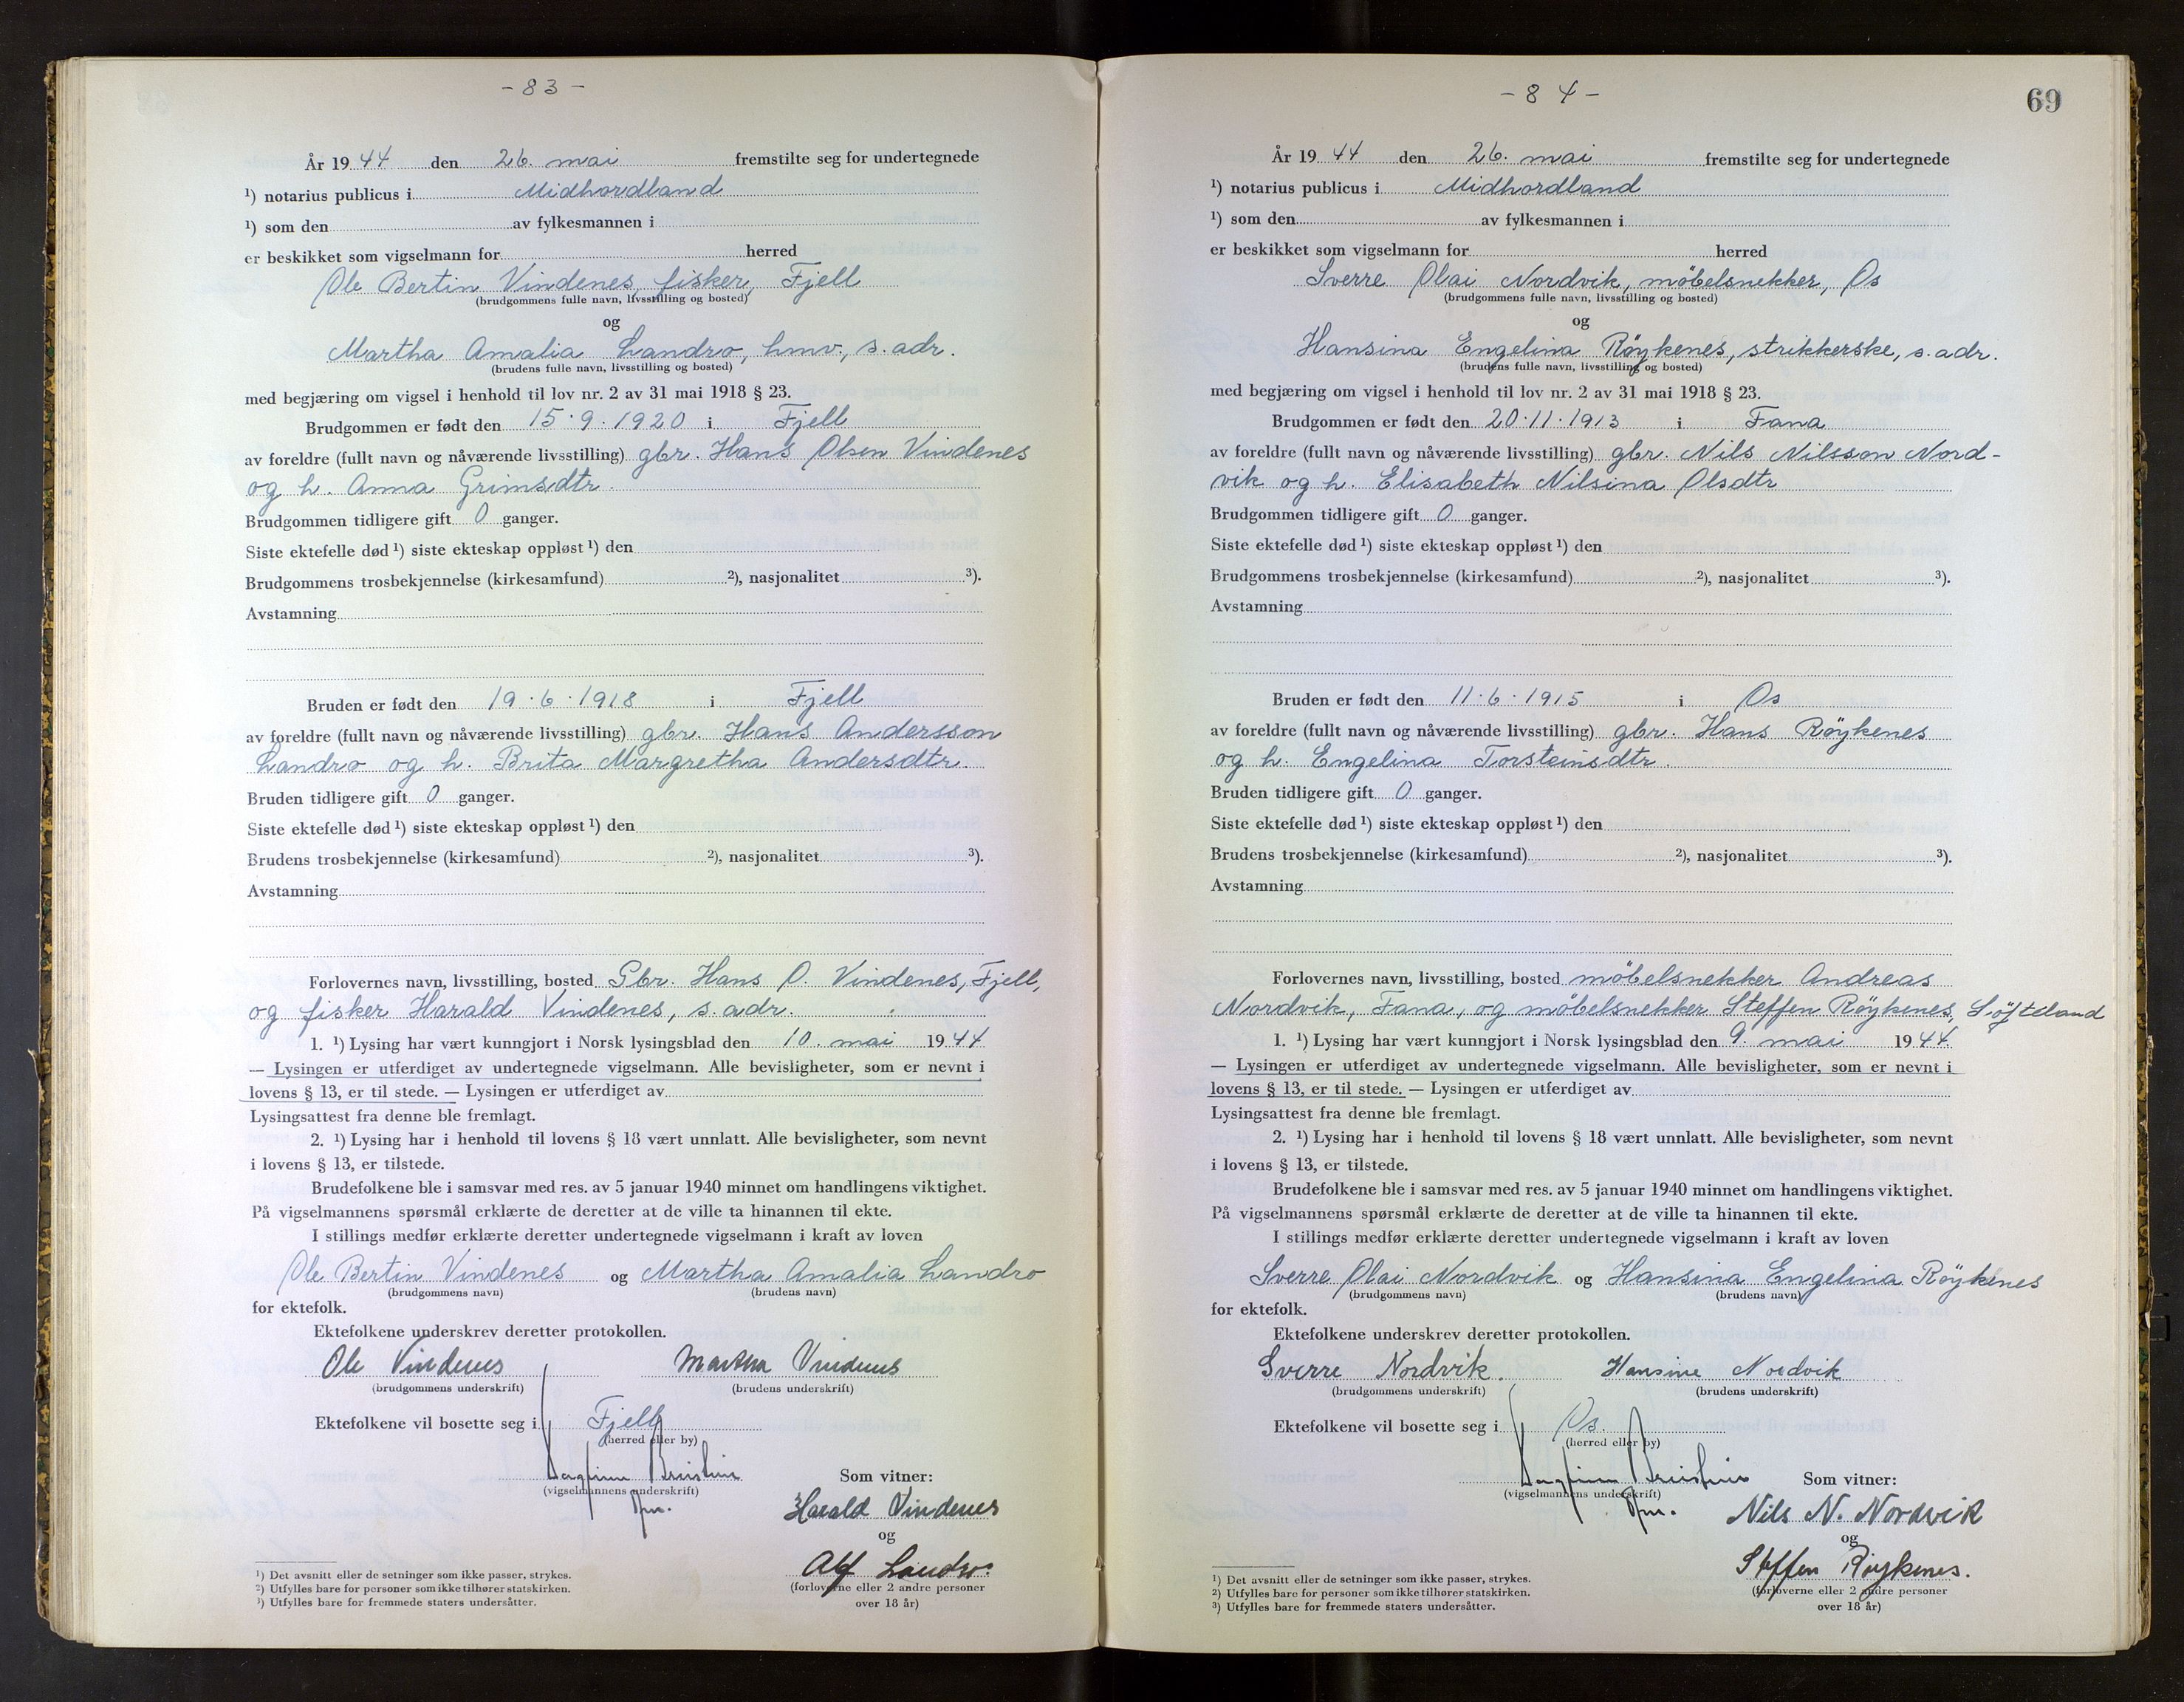 - 83 -
År 1944 den 26. mai fremstilte seg for undertegnede
¹) notarius publicus i Midhordland
¹) som den av fylkesmannen i
er beskikket som vigselmann for herred
Ole Bertin Vindenes, fisker, Fjell
(brudgommens fulle navn, livsstilling og bosted)
og
Martha Amalia Landro, hmv., s. adr.
(brudens fulle navn, livsstilling og bosted)
med begjæring om vigsel i henhold til lov nr. 2 av 31 mai 1918 § 23.
Brudgommen er født den 15.9.1920 i Fjell
av foreldre (fullt navn og nåværende livsstilling) gbr. Hans Olsen Vindenes
og h. Anna Grimsdtr.
Brudgommen tidligere gift 0 ganger.
Siste ektefelle død ¹) siste ekteskap oppløst ¹) den
Brudgommens trosbekjennelse (kirkesamfund) ²), nasjonalitet ³).
Avstamning
Bruden er født den 19.6.1918 i Fjell
av foreldre (fullt navn og nåværende livsstilling) gbr. Hans Andersson
Landro og h. Brita Margretha Andersdtr.
Bruden tidligere gift 0 ganger.
Siste ektefelle død ¹) siste ekteskap oppløst ¹) den
Brudens trosbekjennelse (kirkesamfund) ²), nasjonalitet ³).
Avstamning
Forlovernes navn, livsstilling, bosted Gbr. Hans O. Vindenes, Fjell,
og fisker Harald Vindenes, s. adr.
1. ¹) Lysing har vært kunngjort i Norsk lysingsblad den 10. mai 1944
— Lysingen er utferdiget av undertegnede vigselmann. Alle bevisligheter, som er nevnt i
lovens § 13, er til stede. — Lysingen er utferdiget av
Lysingsattest fra denne ble fremlagt.
2. ¹) Lysing har i henhold til lovens § 18 vært unnlatt. Alle bevisligheter, som nevnt
i lovens § 13, er tilstede.
Brudefolkene ble i samsvar med res. av 5 januar 1940 minnet om handlingens viktighet.
På vigselmannens spørsmål erklærte de deretter at de ville ta hinannen til ekte.
I stillings medfør erklærte deretter undertegnede vigselmann i kraft av loven
Ole Bertin Vindenes og Martha Amalia Landro
(brudgommens navn) (brudens navn)
for ektefolk.
Ektefolkene underskrev deretter protokollen.
Ole Vindenes Martha Vindenes
(brudgommens underskrift) (brudens underskrift)
Ektefolkene vil bosette seg i Fjell
(herred eller by)
Som vitner:
(vigselmannens underskrift)
Harald Vindenes
og
Alf Landro.
(forloverne eller 2 andre personer
over 18 år)
¹) Det avsnitt eller de setninger som ikke passer, strykes.
²) Utfylles bare for personer som ikke tilhører statskirken.
³) Utfylles bare for fremmede staters undersåtter.
- 84 -
69
År 1944 den 26. mai fremstilte seg for undertegnede
¹) notarius publicus i Midhordland
¹) som den av fylkesmannen i
er beskikket som vigselmann for herred
Sverre Olai Nordvik, möbelsnekker, Os
(brudgommens fulle navn, livsstilling og bosted)
og
Hansina Engelina Röykenes, strikkerske, s. adr.
(brudens fulle navn, livsstilling og bosted)
med begjæring om vigsel i henhold til lov nr. 2 av 31 mai 1918 § 23.
Brudgommen er født den 20.11.1913 i Fana
av foreldre (fullt navn og nåværende livsstilling) gbr. Nils Nilsson Nord-
vik og h. Elisabeth Nilsina Olsdtr
Brudgommen tidligere gift 0 ganger.
Siste ektefelle død ¹) siste ekteskap oppløst ¹) den
Brudgommens trosbekjennelse (kirkesamfund) ²), nasjonalitet ³).
Avstamning
Bruden er født den 11.6.1915 i Os
av foreldre (fullt navn og nåværende livsstilling) gbr. Hans Röykenes
og h. Engelina Torsteinsdtr.
Bruden tidligere gift 0 ganger.
Siste ektefelle død ¹) siste ekteskap oppløst ¹) den
Brudens trosbekjennelse (kirkesamfund) ²), nasjonalitet ³).
Avstamning
Forlovernes navn, livsstilling, bosted möbelsnekker Andreas
Nordvik, Fana, og möbelsnekker Steffen Röykenes, Söfteland
1. ¹) Lysing har vært kunngjort i Norsk lysingsblad den 9. mai 1944.
— Lysingen er utferdiget av undertegnede vigselmann. Alle bevisligheter, som er nevnt i
lovens § 13, er til stede. — Lysingen er utferdiget av
Lysingsattest fra denne ble fremlagt.
2. ¹) Lysing har i henhold til lovens § 18 vært unnlatt. Alle bevisligheter, som nevnt
i lovens § 13, er tilstede.
Brudefolkene ble i samsvar med res. av 5 januar 1940 minnet om handlingens viktighet.
På vigselmannens spørsmål erklærte de deretter at de ville ta hinannen til ekte.
I stillings medfør erklærte deretter undertegnede vigselmann i kraft av loven
Sverre Olai Nordvik og Hansina Engelina Röykenes
(brudgommens navn) (brudens navn)
for ektefolk.
Ektefolkene underskrev deretter protokollen.
Sverre Nordvik. Hansine Nordvik
(brudgommens underskrift) (brudens underskrift)
Ektefolkene vil bosette seg i Os.
(herred eller by)
Som vitner:
(vigselmannens underskrift)
Nils N. Nordvik
og
Steffen Röykenes.
(forloverne eller 2 andre personer
over 18 år)
¹) Det avsnitt eller de setninger som ikke passer, strykes.
²) Utfylles bare for personer som ikke tilhører statskirken.
³) Utfylles bare for fremmede staters undersåtter.